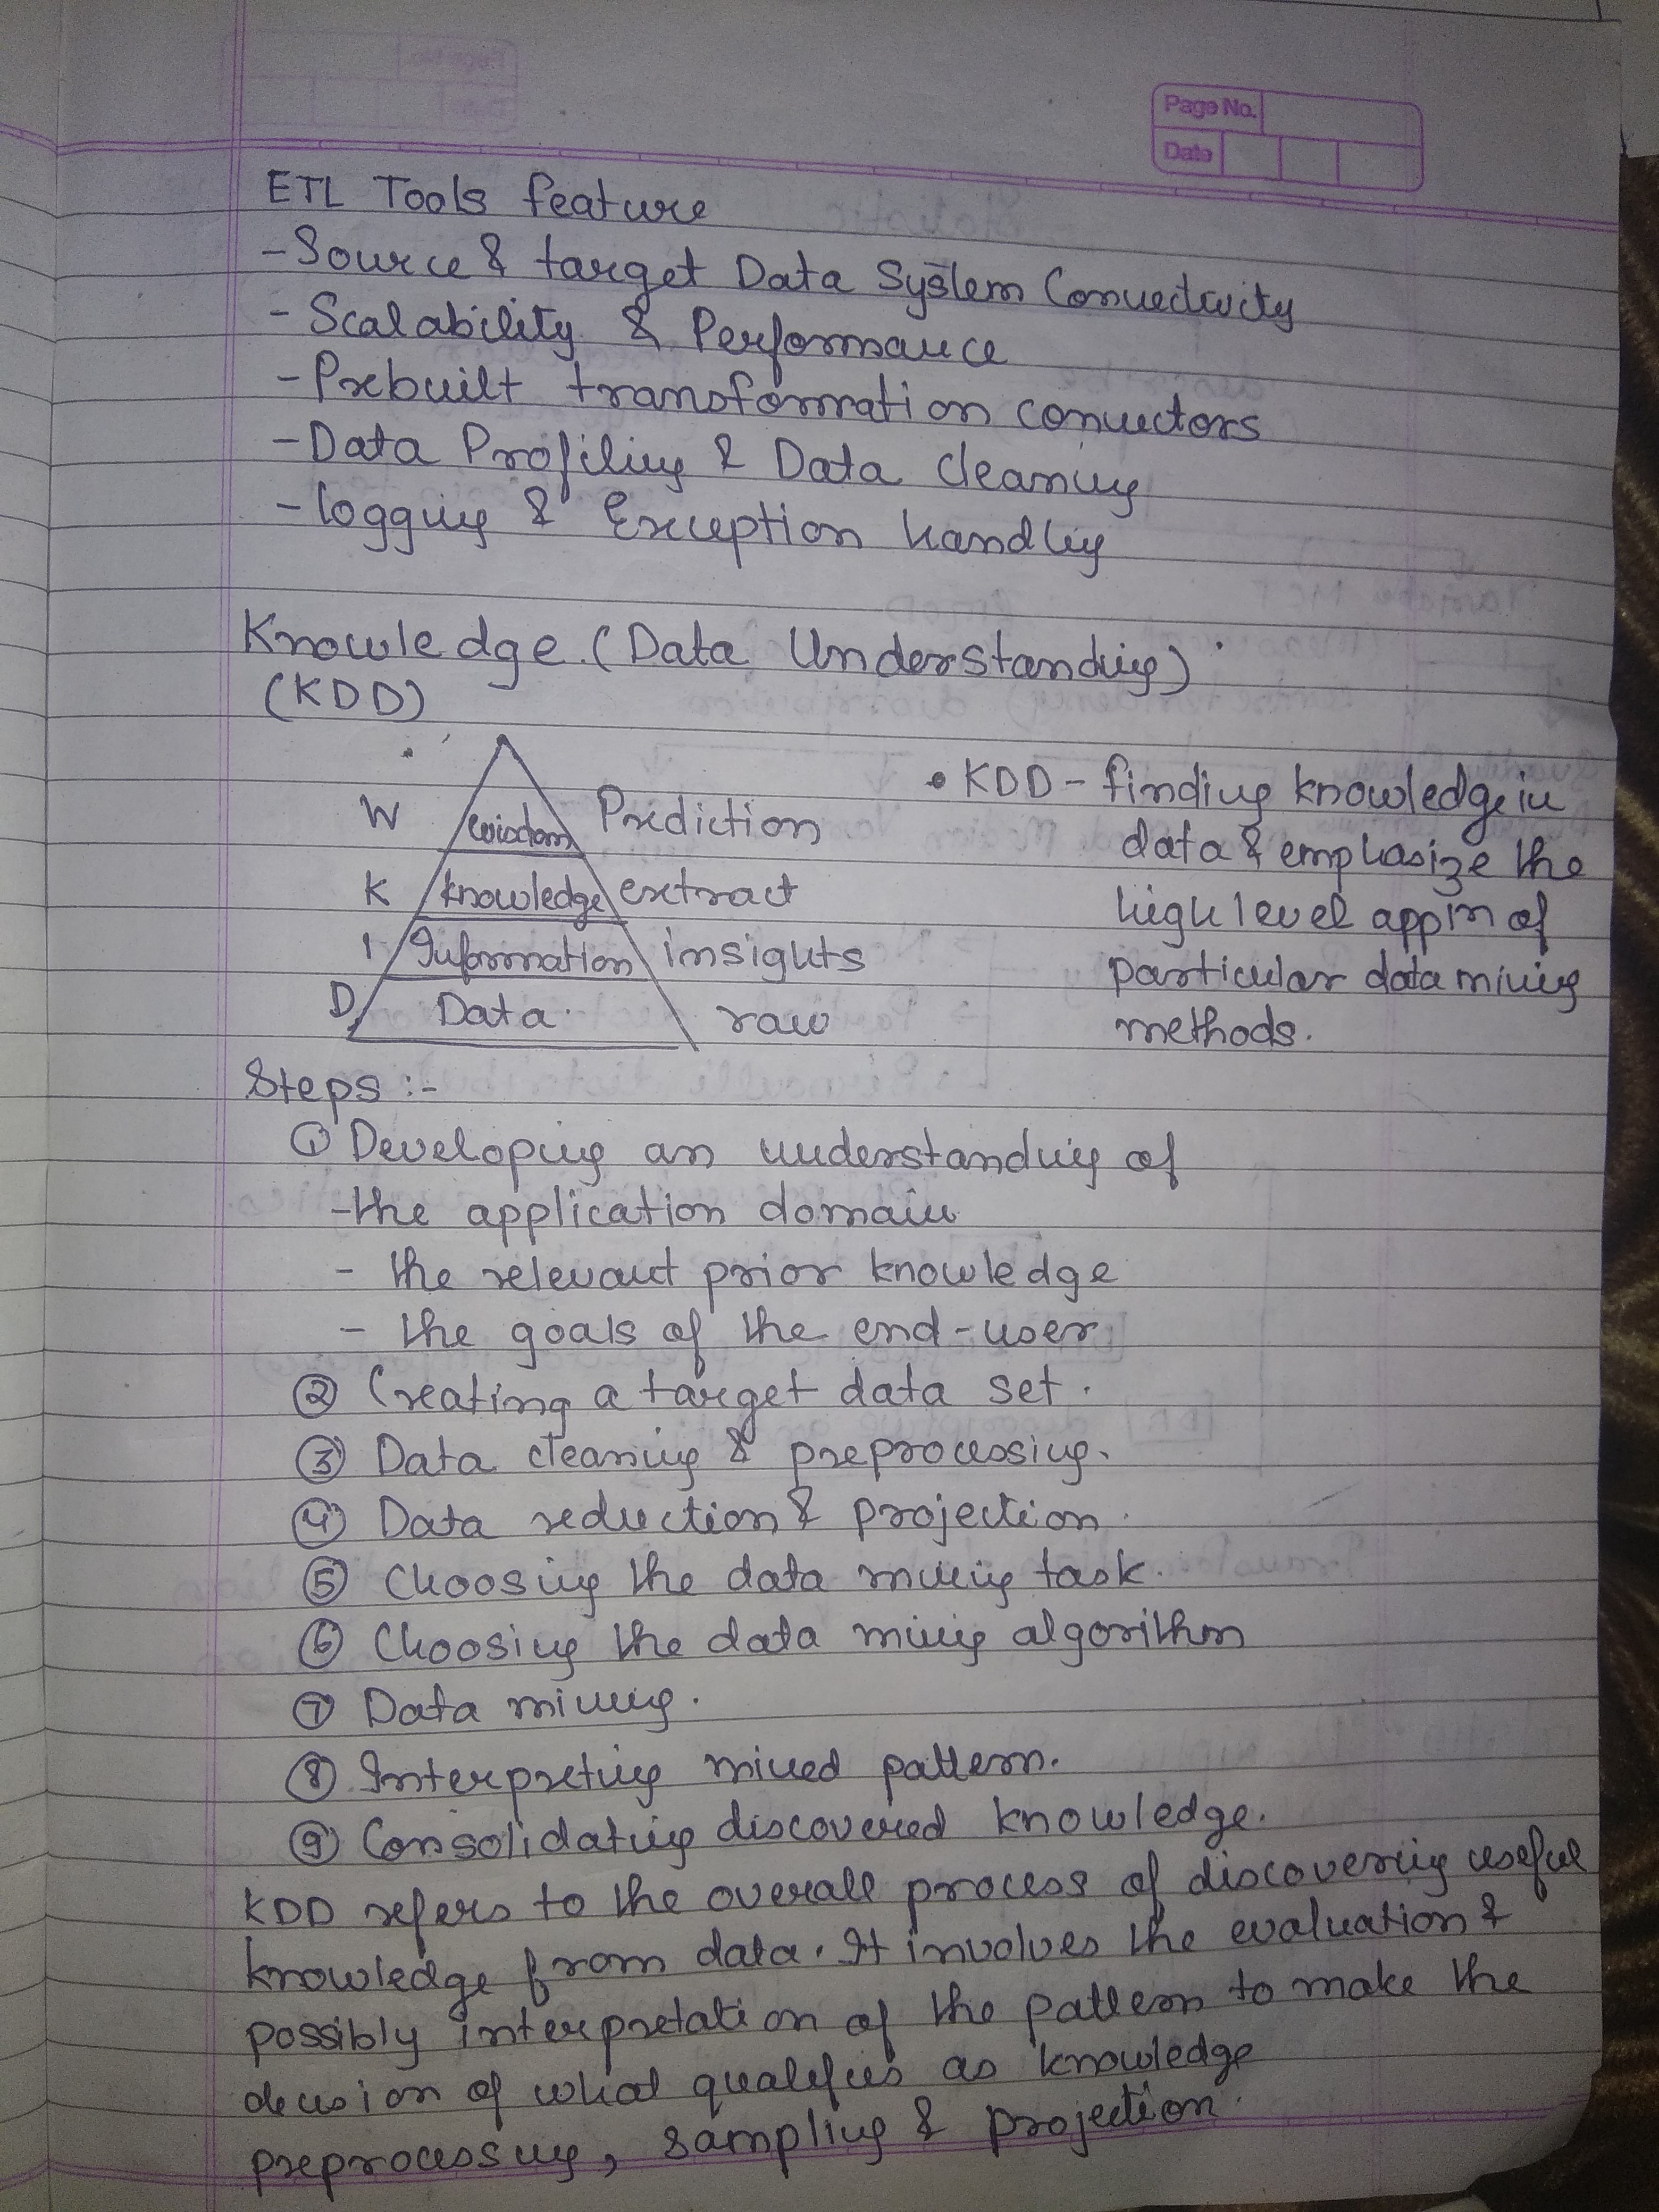 Page No.
Date
ETL Tools feature
- Source & target Data System Connectivity
- Scalability & Performance
- Prebuilt transformation connectors
- Data Profiling & Data cleaning
- logging & Exception handling
Knowledge (Data Understanding)
(KDD)
W wisdom Prediction
K knowledge extract
I Information insights
D Data raw
• KDD - finding knowledge in
data & emphasize the
high level appln of
particular data mining
methods.
Steps :-
① Developing an understanding of
- the application domain
- the relevant prior knowledge
- the goals of the end-user
② Creating a target data set.
③ Data cleaning & preprocessing.
④ Data reduction & projection.
⑤ Choosing the data mining task.
⑥ Choosing the data mining algorithm
⑦ Data mining.
⑧ Interpreting mined pattern.
⑨ Consolidating discovered knowledge.
KDD refers to the overall process of discovering useful
knowledge from data. It involves the evaluation &
possibly interpretation of the pattern to make the
decision of what qualifies as knowledge
preprocessing, sampling & projection.